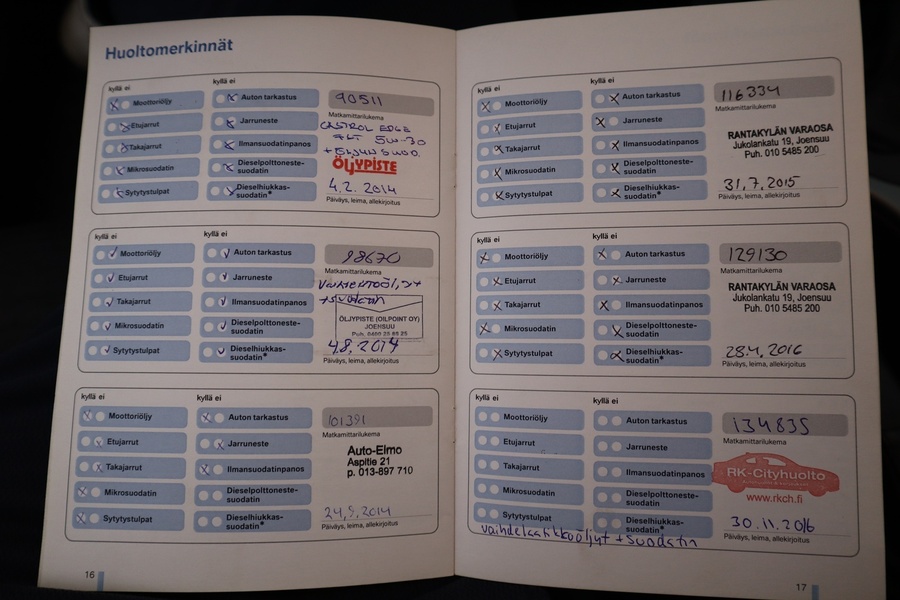 Huoltomerkinnät
kyllä ei
kyllä ei
Moottoriöljy
Etujarrut
Takajarrut
Mikrosuodatin
Sytytystulpat
Auton tarkastus
Jarruneste
Ilmansuodatinpanos
Dieselpolttoneste-
suodatin
Dieselhiukkas-
suodatin*
90511
Matkamittarilukema
CASTROL EDGE
5W-30
ÖLJYPISTE
4.2.2014
Päiväys, leima, allekirjoitus
kyllä ei
kyllä ei
Moottoriöljy
Etujarrut
Takajarrut
Mikrosuodatin
Sytytystulpat
Auton tarkastus
Jarruneste
Ilmansuodatinpanos
Dieselpolttoneste-
suodatin
Dieselhiukkas-
suodatin*
98670
Matkamittarilukema
+suodatin
ÖLJYPISTE (OILPOINT OY)
JOENSUU
4.8.2014
Päiväys, leima, allekirjoitus
kyllä ei
kyllä ei
Moottoriöljy
Etujarrut
Takajarrut
Mikrosuodatin
Sytytystulpat
Auton tarkastus
Jarruneste
Ilmansuodatinpanos
Dieselpolttoneste-
suodatin
Dieselhiukkas-
suodatin*
101391
Matkamittarilukema
Auto-Elmo
Aspitie 21
p. 013-897 710
24.9.2014
Päiväys, leima, allekirjoitus
16
kyllä ei
kyllä ei
Moottoriöljy
Etujarrut
Takajarrut
Mikrosuodatin
Sytytystulpat
Auton tarkastus
Jarruneste
Ilmansuodatinpanos
Dieselpolttoneste-
suodatin
Dieselhiukkas-
suodatin*
116334
Matkamittarilukema
RANTAKYLÄN VARAOSA
Jukolankatu 19, Joensuu
Puh. 010 5485 200
31.7.2015
Päiväys, leima, allekirjoitus
kyllä ei
kyllä ei
Moottoriöljy
Etujarrut
Takajarrut
Mikrosuodatin
Sytytystulpat
Auton tarkastus
Jarruneste
Ilmansuodatinpanos
Dieselpolttoneste-
suodatin
Dieselhiukkas-
suodatin*
129130
Matkamittarilukema
RANTAKYLÄN VARAOSA
Jukolankatu 19, Joensuu
Puh. 010 5485 200
28.4.2016
Päiväys, leima, allekirjoitus
kyllä ei
kyllä ei
Moottoriöljy
Etujarrut
Takajarrut
Mikrosuodatin
Sytytystulpat
Auton tarkastus
Jarruneste
Ilmansuodatinpanos
Dieselpolttoneste-
suodatin
Dieselhiukkas-
suodatin*
134835
Matkamittarilukema
RK-Cityhuolto
www.rkch.fi
30.11.2016
Päiväys, leima, allekirjoitus
vaihdelaatikkoöljyt + suodatin
17